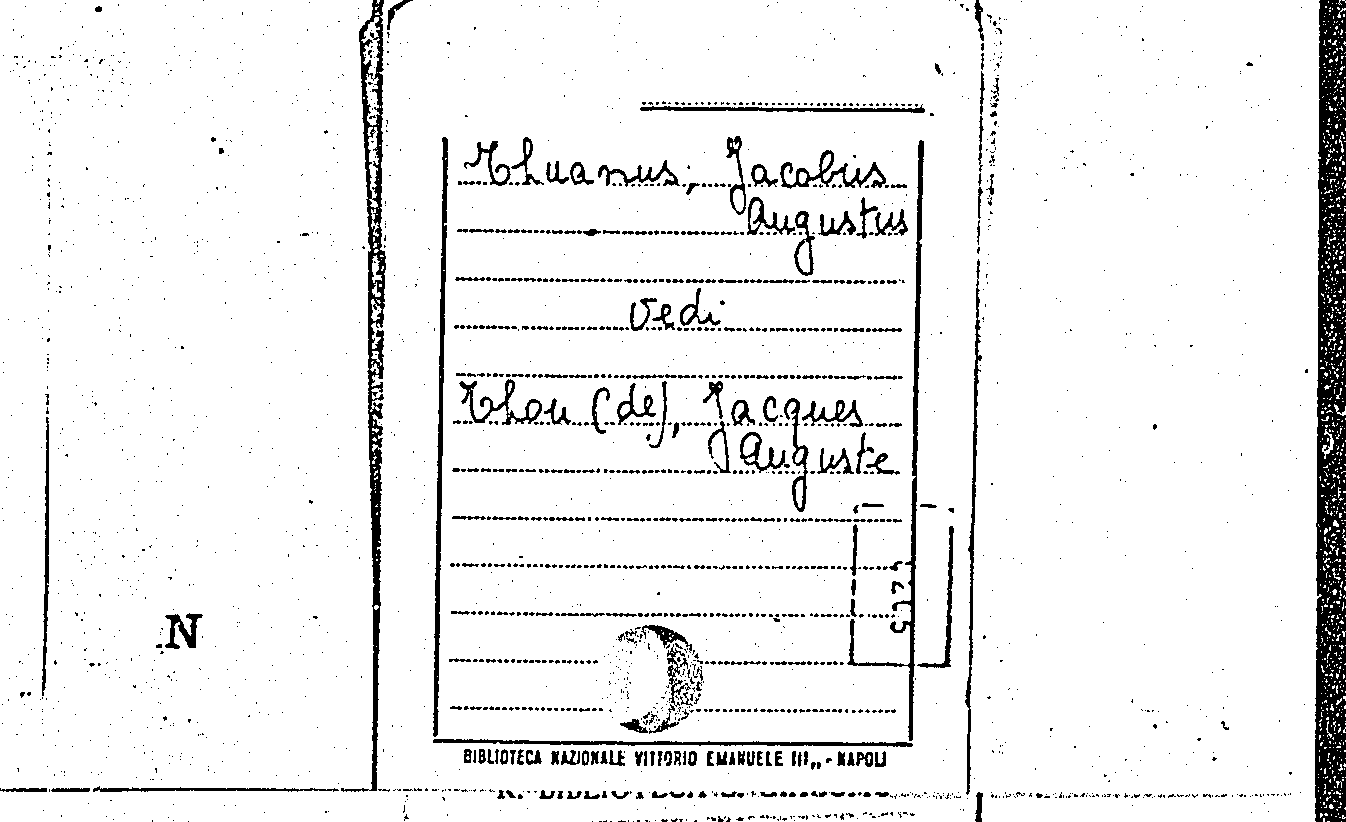 Thuanus, Jacobus
Augustus
vedi
Thou (de), Jacques
Auguste
N
BIBLIOTECA NAZIONALE VITTORIO EMANUELE III„ - NAPOLI